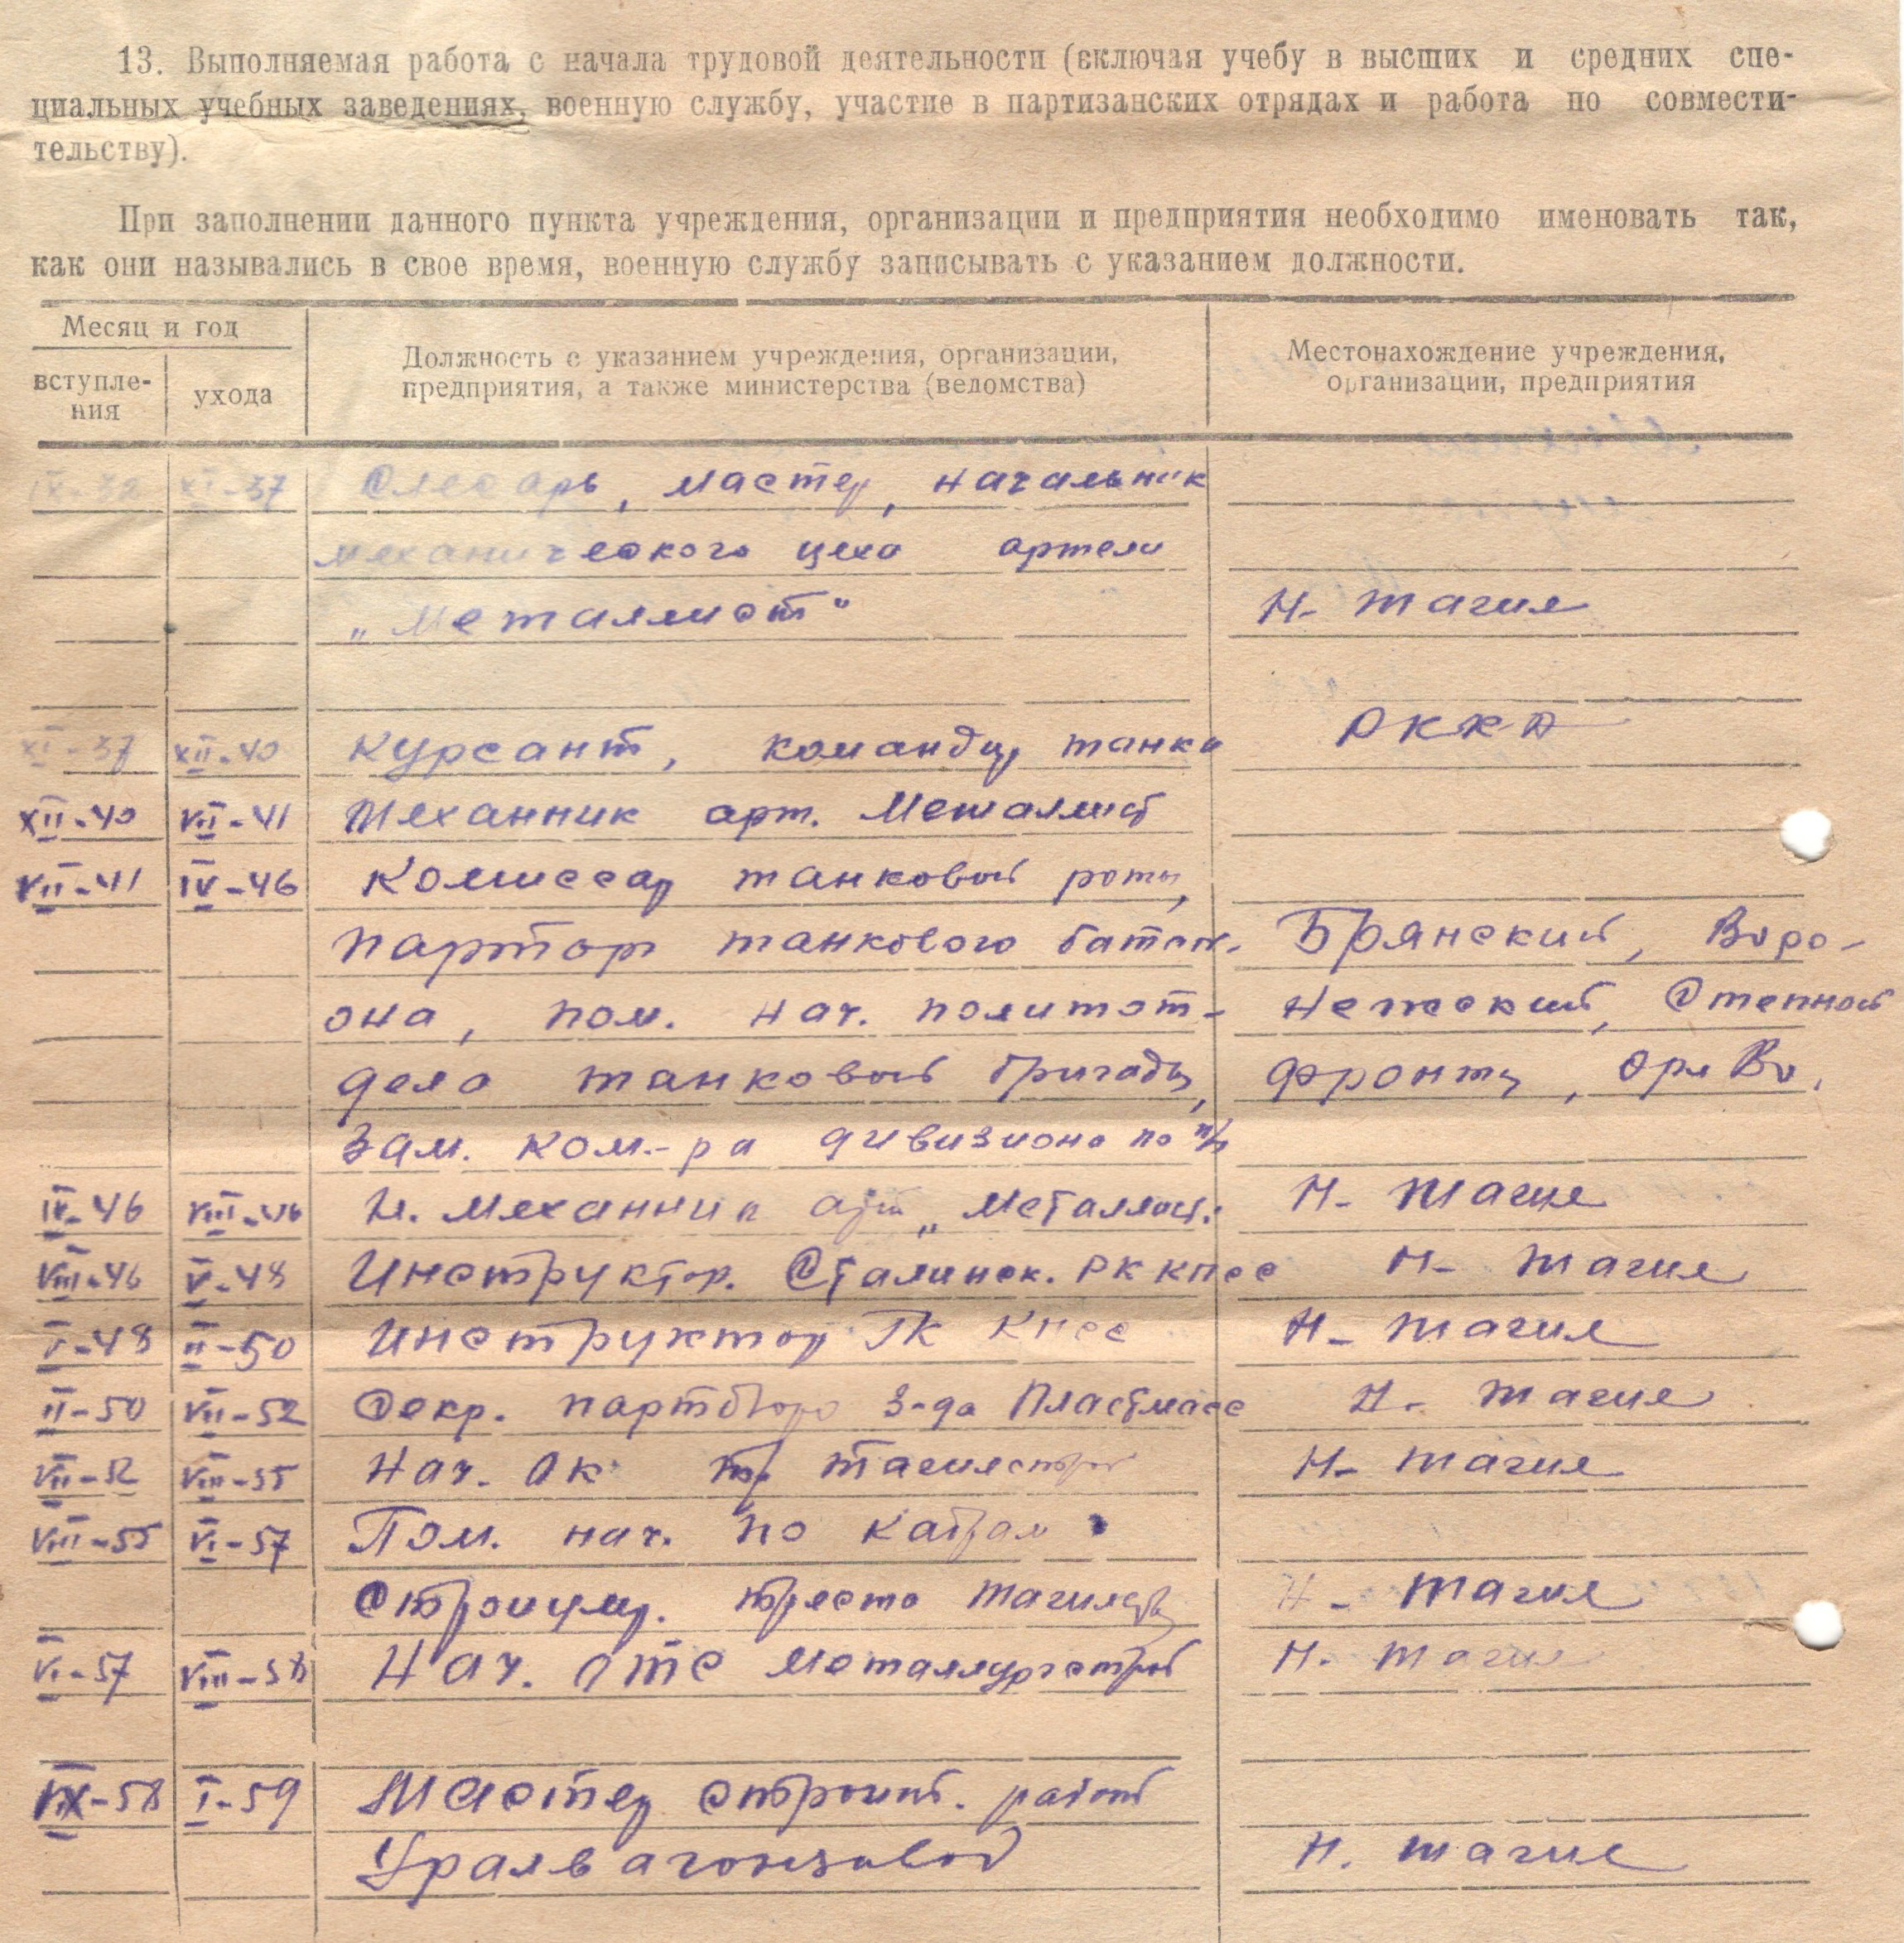 13. Выполняемая работа с начала трудовой деятельности (включая учебу в высших и средних спе-
циальных учебных заведениях, военную службу, участие в партизанских отрядах и работа по совмести-
тельству).
При заполнении данного пункта учреждения, организации и предприятия необходимо именовать так,
как они назывались в свое время, военную службу записывать с указанием должности.
Месяц и год
вступле-
ния
ухода
Должность с указанием учреждения, организации,
предприятия, а также министерства (ведомства)
Местонахождение учреждения,
организации, предприятия
XI-37 Слесарь, мастер, начальник
механического цеха артели
„Металлист" Н-Тагил
XI-37 XII-40 Курсант, командир танка РККА
XII-40 VII-41 Механник арт. Металлист
VII-41 IV-46 Комиссар танковой роты,
парторг танкового батал- Брянский, Воро-
она, пом. нач. политот- нежский, Степной
дела танковой бригады, фронты, ОрлВо.
зам. ком-ра дивизиона по п/ч
IV-46 VIII-46 механник арт „Металлист" Н-Тагил
VIII-46 V-48 Инструктор. Сталинск. РК КПСС Н-Тагил
V-48 II-50 Инструктор ГК КПСС Н-Тагил
II-50 VII-52 Секр. партбюро з-да Пластмасс Н-Тагил
VII-52 VIII-55 Нач. ОК тр Тагилстрой Н-Тагил
VIII-55 VI-57 Пом. нач. по кадрам
Стройупр. треста Тагилстр Н-Тагил
VI-57 VIII-58 Нач. ОТС Металлургстрой Н-Тагил
IX-58 I-59 Мастер строит. работ
Уралвагонзавод Н. Тагил